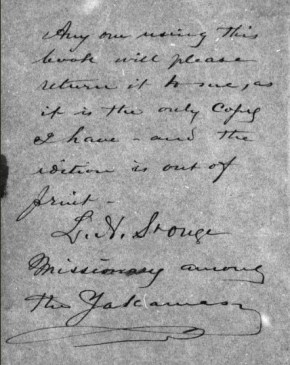 Any one using this
book will please
return it to me, as
it is the only Copy
I have - and the
edition is out of
print -
L. N. St Onge
Missionary among
the Yakamas